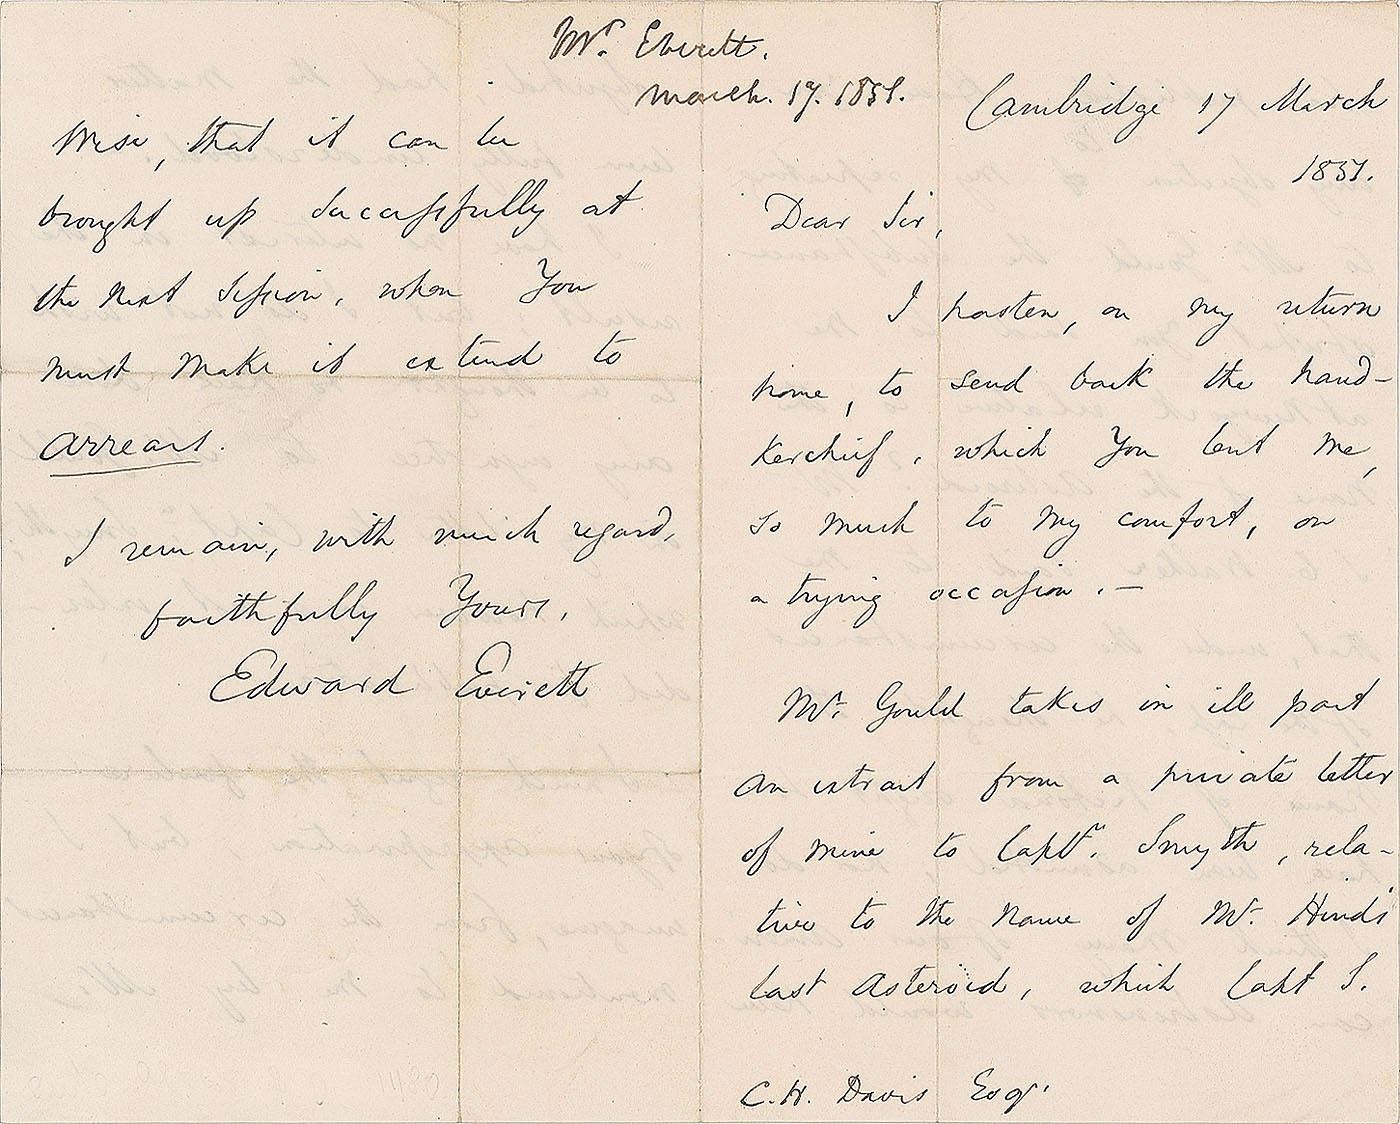 Mr. Everett.
March. 17. 1851.
Cambridge 17 March
1851.
Dear Sir,
I hasten, on my return
home, to send back the hand-
kerchief, which you lent me,
so much to my comfort, on
a trying occasion. —
Mr. Gould takes in ill part
an extract from a private letter
of mine to Captn. Smyth, rela-
tive to the name of Mr. Hind's
last asteroid, which Capt S.
C. H. Davis Esqr.
wise, that it can be
brought up successfully at
the next session, when you
must make it extend to
arrears.
I remain, with much regard,
faithfully Yours,
Edward Everett